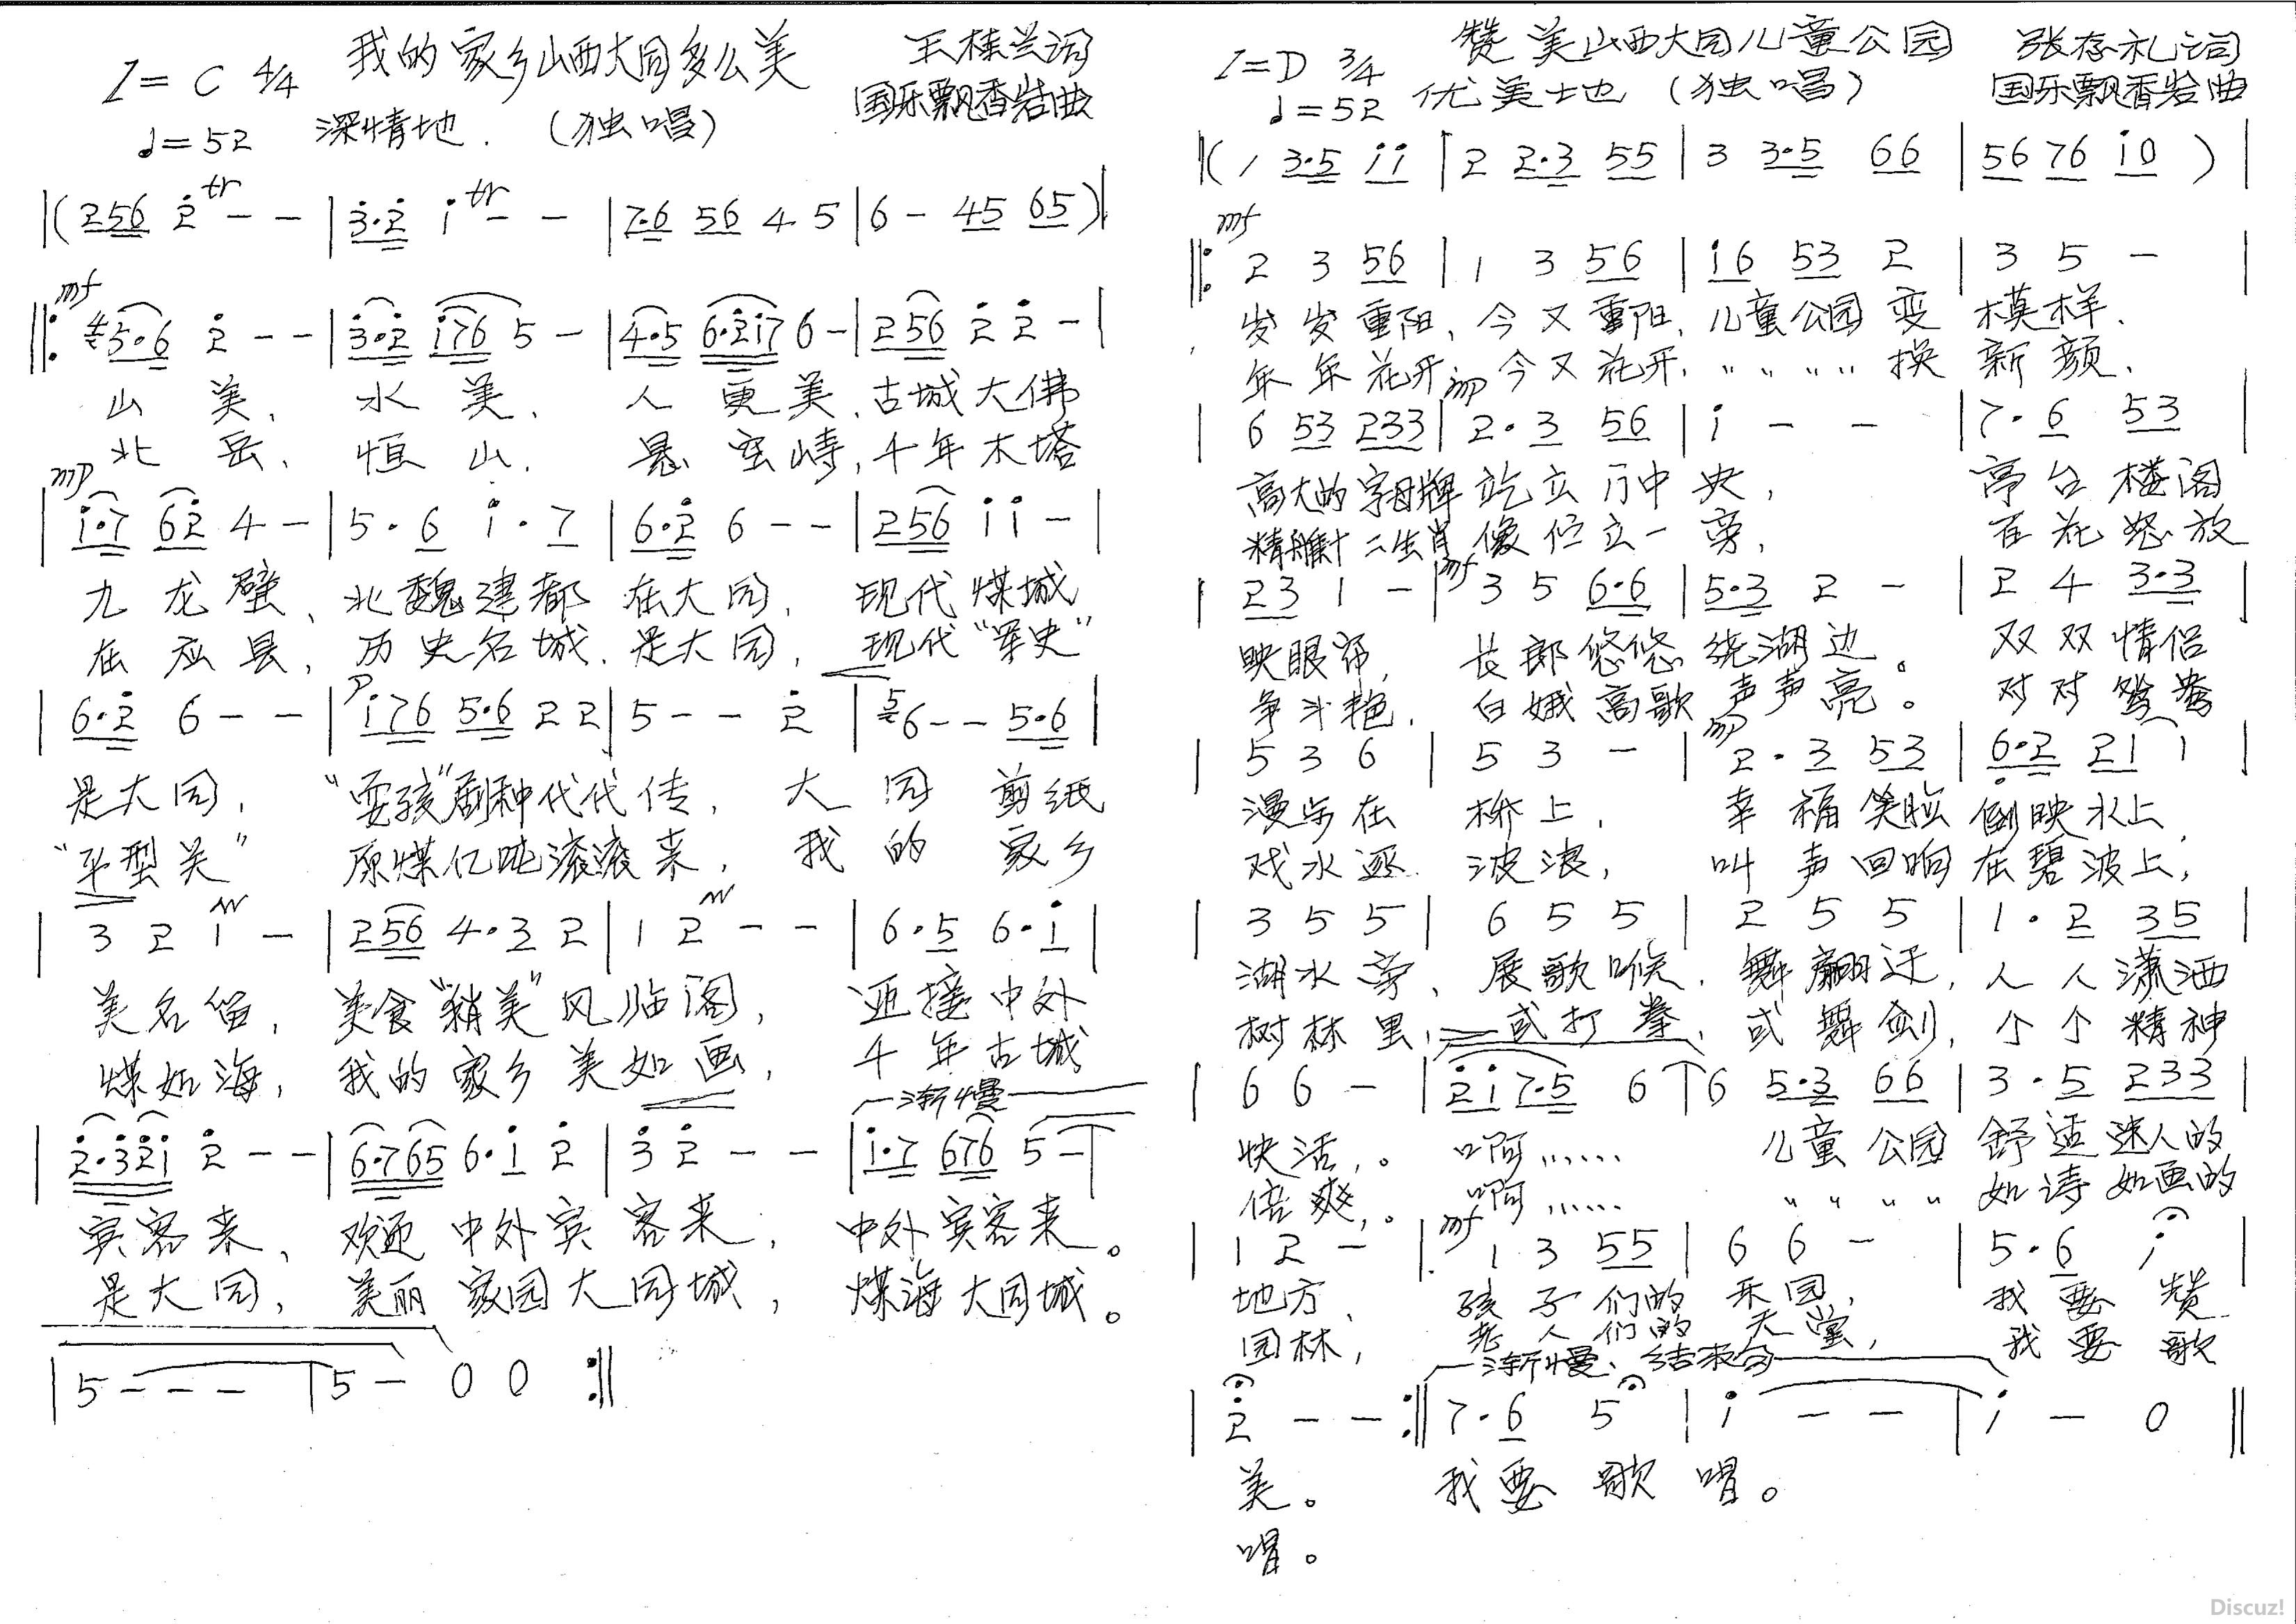 我的家乡山西大同多么美
王桂兰词
1=C 4/4
国乐飘香岩曲
♩=52 深情地. (独唱)
|(256 2̇ tr - - |3̇·2̇ i̇ tr - - |7·6 56 4 5|6 - 45 65)|
mf
||: 5·6 2̇ - - |3̇·2̇ i̇76 5 - |4·5 6·2̇i̇7 6 - |256 2̇ 2̇ - |
山 美、 水 美、 人 更美,古城大佛
北 岳、 恒 山. 悬空寺,千年木塔
mp
|i̇·7 62̇ 4 - |5·6 i̇·7 |6·2̇ 6 - - |256 i̇ i̇ - |
九龙壁、北魏建都 在大同, 现代煤城
在应县, 历史名城.是大同, 现代“军史”
|6·2̇ 6 - - | p i̇76 5·6 2 2|5 - - 2̇ |6 - - 5·6|
是大同, “耍孩”剧种代代传, 大 同 剪纸
“平型关” 原煤亿吨滚滚来, 我 的 家乡
|3 2 1 - |256 4·3 2|1 2 - - |6·5 6·i̇|
美名留, 美食“稍美”凤临阁, 迎接中外
煤如海, 我的家乡美如画, 千年古城
渐慢
|2̇·3̇2̇i̇ 2̇ - - |6·765 6·i̇ 2̇ |3̇ 2̇ - - |i̇·7 676 5 - |
宾客来、 欢迎中外宾客来, 中外宾客来。
是大同, 美丽家园大同城, 煤海大同城。
|5 - - - |5 - 0 0 :||
赞美山西大同儿童公园
张存礼词
1=D 3/4
国乐飘香岩曲
♩=52 优美地 (独唱)
|(1 3·5 i̇i̇ |2 2·3 55 |3 3·5 66 |56 76 i̇0 )|
mf
||: 2 3 56 |1 3 56 |i̇6 53 2 |3 5 - |
岁岁重阳,今又重阳,儿童公园变模样.
年年花开,今又花开, 〃 〃 〃 〃 换 新颜.
mp
|6 53 233|2·3 56 |i̇ - - |7·6 53 |
高大的字母牌屹立门中央, 亭台楼阁
精雕十二生肖像伫立一旁, 百花怒放
|23 1 - | mf 3 5 6·6 |5·3 2 - |2 4 3·3 |
映眼帘, 长廊悠悠绕湖边。 双双情侣
争斗艳. 白娥高歌声声亮。 对对鸳鸯
|5 3 6 |5 3 - | mp 2·3 53 |6·2 21 1 |
漫步在 桥上, 幸福笑脸倒映水上,
戏水逐 波浪, 叫声回响在碧波上,
|3 5 5 |6 5 5 |2 5 5 |1·2 35 |
湖水旁、展歌喉、舞翩迁,人人潇洒
树林里, 或打拳、或舞剑,个个精神
|6 6 - |2̇i̇ 7·5 6 |6 5·3 66 |3·5 233 |
快活,。 啊…… 儿童公园舒适迷人的
倍爽,。 啊…… 〃 〃 〃 〃 如诗如画的
|1 2 - | mf 1 3 55 |6 6 - |5·6 i̇ |
地方, 孩子们的 乐园, 我要赞
园林, 老人们的 天堂, 我要歌
渐慢、结束句
|2̇ - - :||7·6 5 |i̇ - - |i̇ - 0 ||
美。 我要歌唱。
唱。
Discuz!